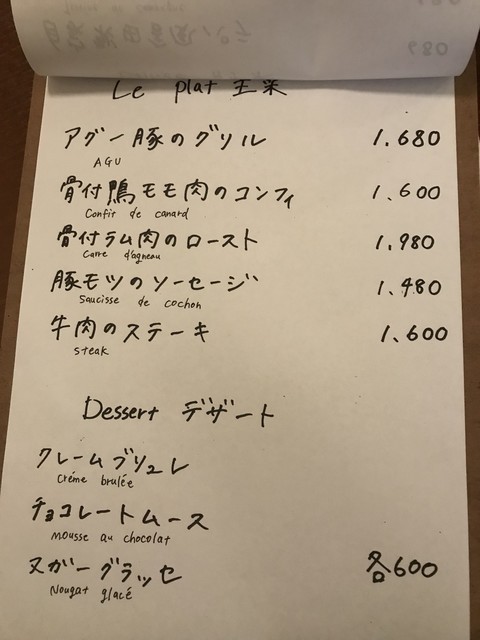 Le plat 主菜
アグー豚のグリル 1.680
AGU
骨付鴨モモ肉のコンフィ 1.600
Confit de canard
骨付ラム肉のロースト 1.980
Carre d'agneau
豚モツのソーセージ 1.480
Saucisse de cochon
牛肉のステーキ 1.600
steak
Dessert デザート
クレームブリュレ
créme brulée
チョコレートムース
mousse au chocolat
ヌガーグラッセ 各600
Nougat glacé